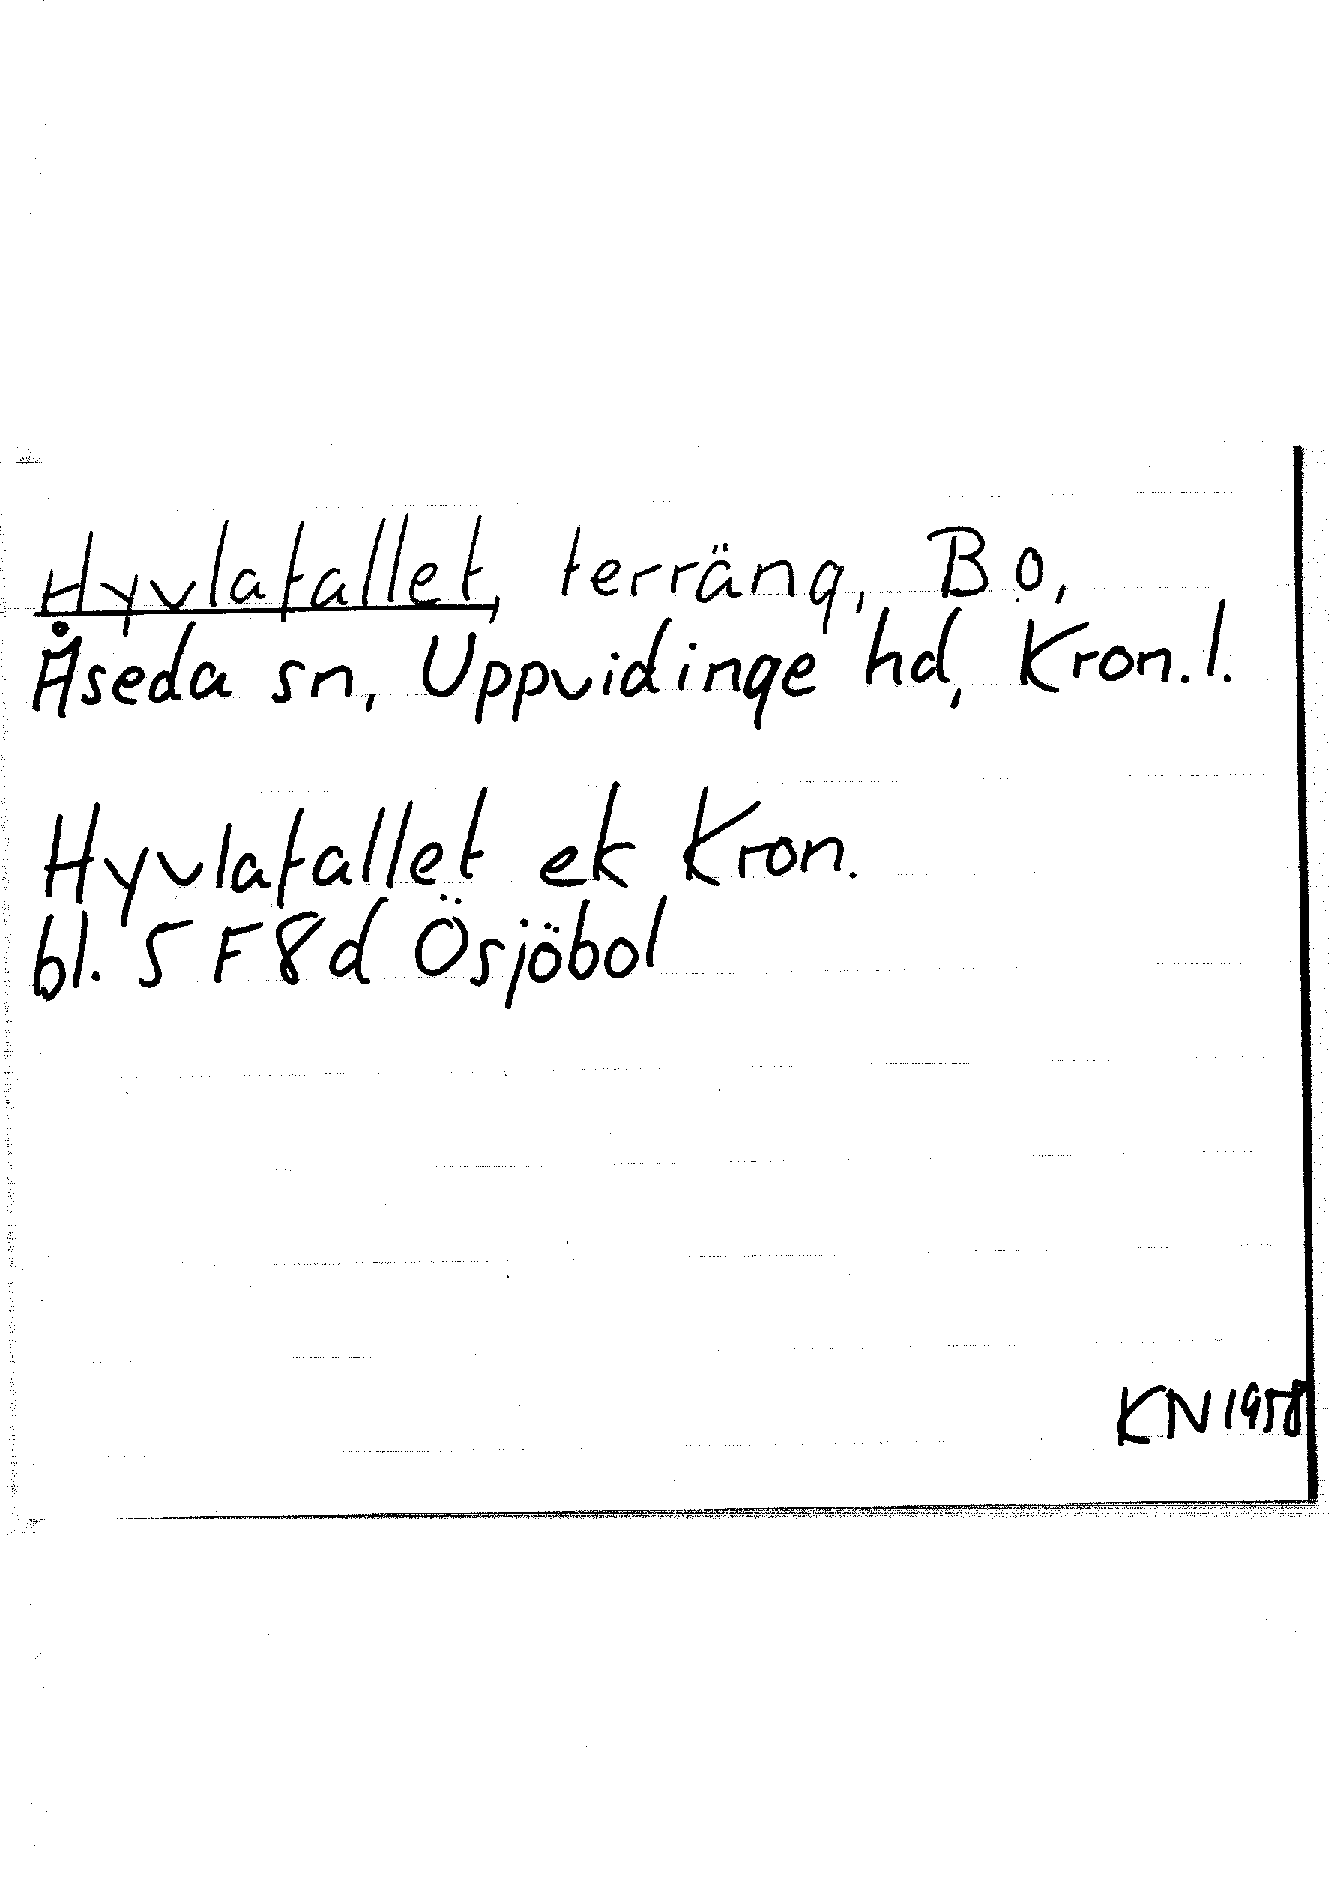 Hyvlafallet, terräng, Bo,
Åseda sn, Uppvidinge hd, Kron.l.
Hyvlafallet ek Kron.
bl. 5 F8d Ösjöbol
KN 1958